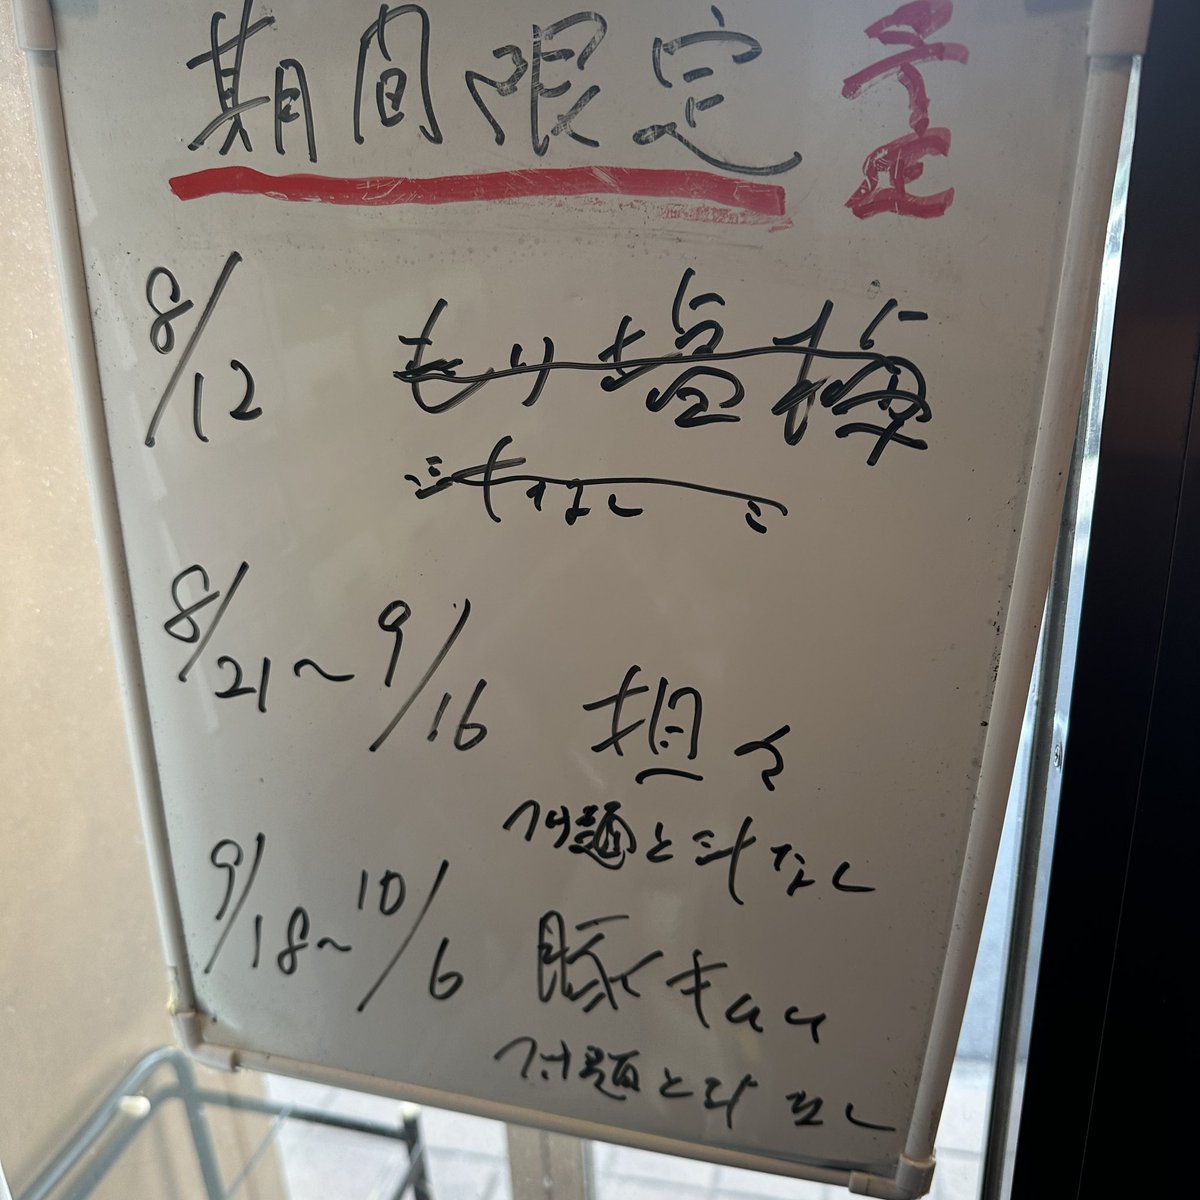 期間限定 予定
8/12 もり塩梅
汁なし
8/21〜9/16 担々
つけ麺と汁なし
9/18〜10/6 豚キムチ
つけ麺と汁なし